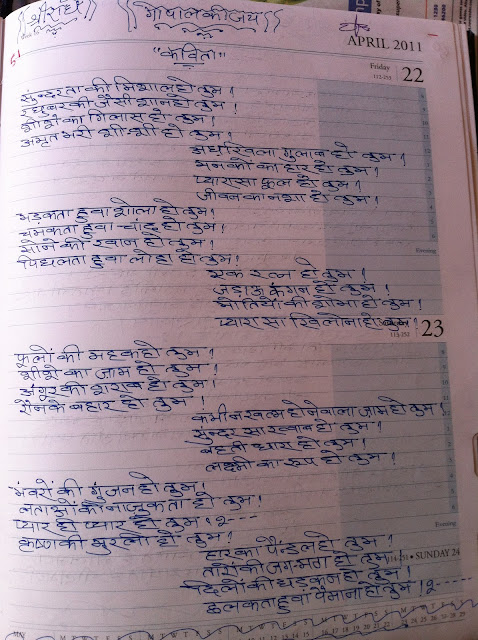 श्री राधे गोपाल की जय
APRIL 2011
"कविता"
Friday
112-253
22
सुन्दरता की मिशाल हो तुम !
रघुवर की जैसी शान हो तुम !
शीशे का गिलास हो तुम !
अमृत भरी शीशी हो तुम !
अधखिला गुलाब हो तुम !
मनकों का हार हो तुम !
प्यारा सा फूल हो तुम !
जीवन का नशा हो तुम !
भड़कता हुवा शोला हो तुम !
चमकता हुवा चाँद हो तुम !
सोने की खान हो तुम !
पिघलता हुवा लोहा हो तुम !
Evening
एक रत्न हो तुम !
जड़ाऊ कंगन हो तुम !
मोतियों की शोभा हो तुम !
प्यारा सा खिलोना हो तुम !
113-252
23
फूलों की महक हो तुम !
शीशे का जाम हो तुम !
अंगूर की शराब हो तुम !
रौनके बहार हो तुम !
कभी न खत्म होने वाला जाम हो तुम !
सुन्दर सा ख्वाब हो तुम !
बहती धारा हो तुम !
लक्ष्मी का रूप हो तुम !
भंवरों की गुंजन हो तुम !
लताओं की नाजुकता हो तुम !
प्यार हो प्यार हो तुम ! २---
कृष्ण की मुरली हो तुम !
Evening
हार का पैंडल हो तुम !
तारों की जगमग हो तुम !
114-251 • SUNDAY 24
दिलों की धड़कन हो तुम !
छलकता हुवा पैमाना हो तुम ! २----